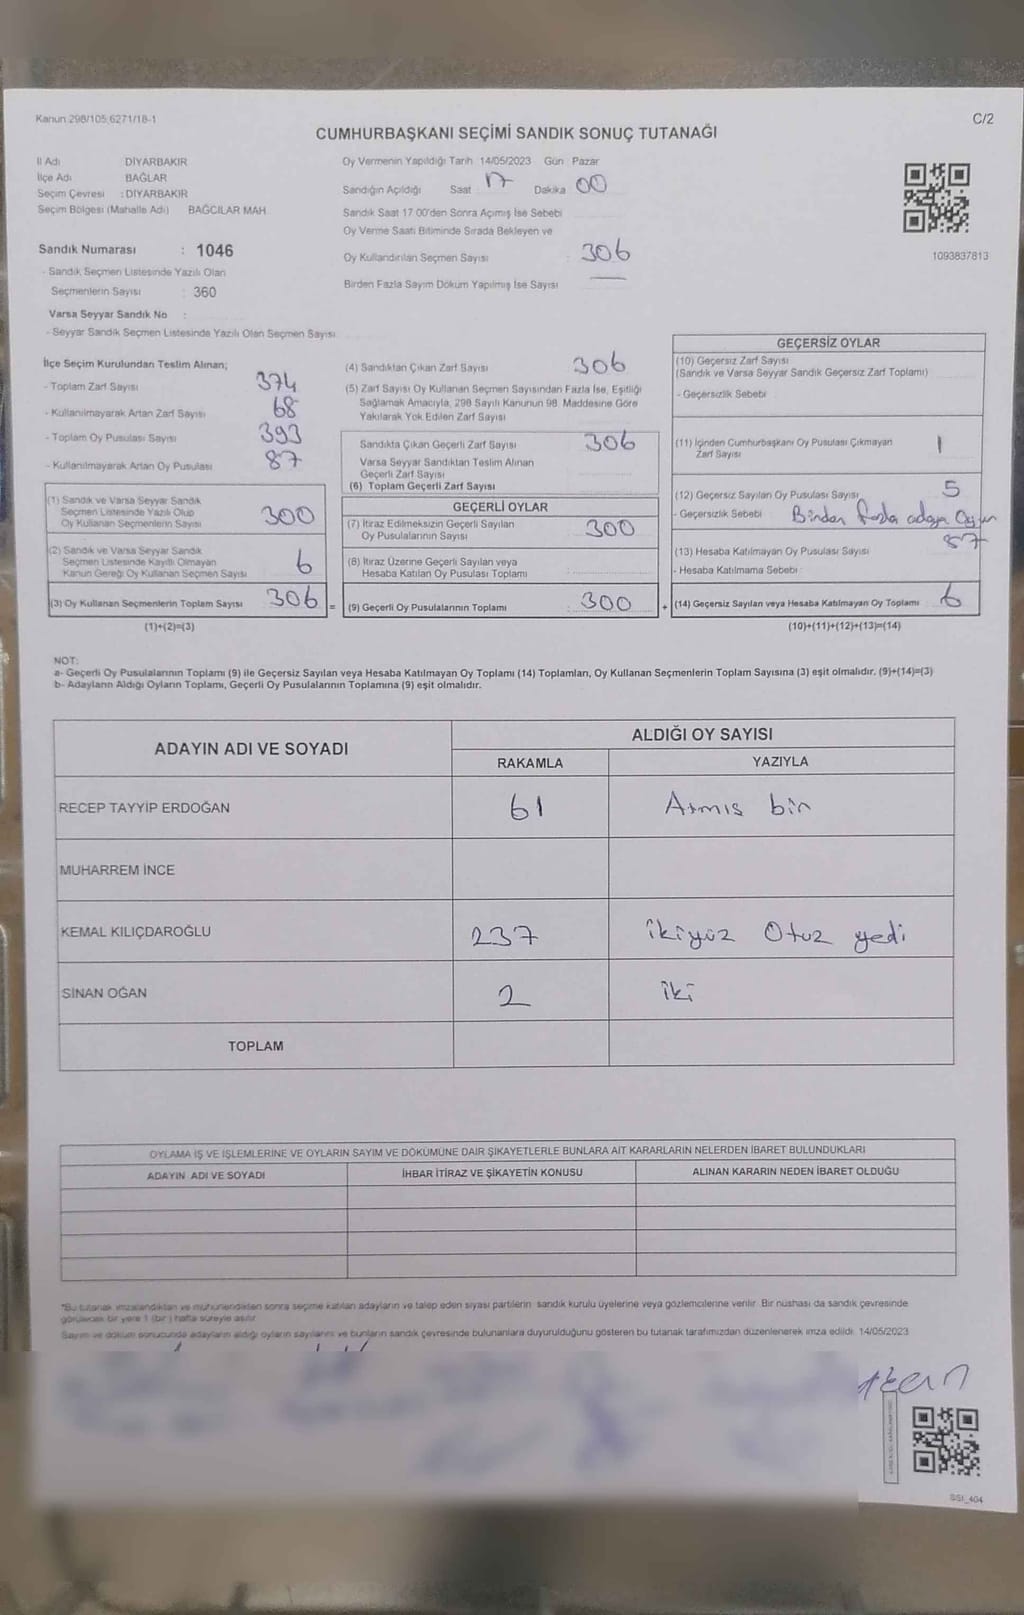 Kanun 298/105,6271/18-1
C/2
CUMHURBAŞKANI SEÇİMİ SANDIK SONUÇ TUTANAĞI
İl Adı DİYARBAKIR
İlçe Adı BAĞLAR
Seçim Çevresi : DİYARBAKIR
Seçim Bölgesi (Mahalle Adı) BAĞCILAR MAH.
Sandık Numarası : 1046
- Sandık Seçmen Listesinde Yazılı Olan
Seçmenlerin Sayısı : 360
Varsa Seyyar Sandık No :
- Seyyar Sandık Seçmen Listesinde Yazılı Olan Seçmen Sayısı
Oy Vermenin Yapıldığı Tarih 14/05/2023 Gün : Pazar
Sandığın Açıldığı Saat 17 Dakika 00
Sandık Saat 17.00'den Sonra Açımış İse Sebebi
Oy Verme Saati Bitiminde Sırada Bekleyen ve
Oy Kullandırılan Seçmen Sayısı : 306
Birden Fazla Sayım Döküm Yapılmış İse Sayısı
1093837813
İlçe Seçim Kurulundan Teslim Alınan;
- Toplam Zarf Sayısı 374
- Kullanılmayarak Artan Zarf Sayısı 68
- Toplam Oy Pusulası Sayısı 393
- Kullanılmayarak Artan Oy Pusulası 87
(1) Sandık ve Varsa Seyyar Sandık
Seçmen Listesinde Yazılı Olup
Oy Kullanan Seçmenlerin Sayısı 300
(2) Sandık ve Varsa Seyyar Sandık
Seçmen Listesinde Kayıtlı Olmayan
Kanun Gereği Oy Kullanan Seçmen Sayısı 6
(3) Oy Kullanan Seçmenlerin Toplam Sayısı 306 =
(1)+(2)=(3)
(4) Sandıktan Çıkan Zarf Sayısı 306
(5) Zarf Sayısı Oy Kullanan Seçmen Sayısından Fazla İse, Eşitliği
Sağlamak Amacıyla, 298 Sayılı Kanunun 98. Maddesine Göre
Yakılarak Yok Edilen Zarf Sayısı
Sandıkta Çıkan Geçerli Zarf Sayısı 306
Varsa Seyyar Sandıktan Teslim Alınan
Geçerli Zarf Sayısı
(6) Toplam Geçerli Zarf Sayısı
GEÇERLİ OYLAR
(7) İtiraz Edilmeksizin Geçerli Sayılan
Oy Pusulalarının Sayısı 300
(8) İtiraz Üzerine Geçerli Sayılan veya
Hesaba Katılan Oy Pusulası Toplamı
(9) Geçerli Oy Pusulalarının Toplamı : 300 +
GEÇERSİZ OYLAR
(10) Geçersiz Zarf Sayısı
(Sandık ve Varsa Seyyar Sandık Geçersiz Zarf Toplamı)
- Geçersizlik Sebebi
(11) İçinden Cumhurbaşkanı Oy Pusulası Çıkmayan 1
Zarf Sayısı
(12) Geçersiz Sayılan Oy Pusulası Sayısı 5
- Geçersizlik Sebebi Birden fazla adaya
87
(13) Hesaba Katılmayan Oy Pusulası Sayısı
- Hesaba Katılmama Sebebi :
(14) Geçersiz Sayılan veya Hesaba Katılmayan Oy Toplamı 6
(10)+(11)+(12)+(13)=(14)
NOT:
a- Geçerli Oy Pusulalarının Toplamı (9) ile Geçersiz Sayılan veya Hesaba Katılmayan Oy Toplamı (14) Toplamları, Oy Kullanan Seçmenlerin Toplam Sayısına (3) eşit olmalıdır. (9)+(14)=(3)
b- Adayların Aldığı Oyların Toplamı, Geçerli Oy Pusulalarının Toplamına (9) eşit olmalıdır.
ADAYIN ADI VE SOYADI
ALDIĞI OY SAYISI
RAKAMLA YAZIYLA
RECEP TAYYİP ERDOĞAN 61 Atmış bir
MUHARREM İNCE
KEMAL KILIÇDAROĞLU 237 ikiyüz Otuz yedi
SİNAN OĞAN 2 iki
TOPLAM
OYLAMA İŞ VE İŞLEMLERİNE VE OYLARIN SAYIM VE DÖKÜMÜNE DAİR ŞİKAYETLERLE BUNLARA AİT KARARLARIN NELERDEN İBARET BULUNDUKLARI
ADAYIN ADI VE SOYADI İHBAR İTİRAZ VE ŞİKAYETİN KONUSU ALINAN KARARIN NEDEN İBARET OLDUĞU
*Bu tutanak imzalandıktan ve mühürlendikten sonra seçime katılan adayların ve talep eden siyasi partilerin sandık kurulu üyelerine veya gözlemcilerine verilir. Bir nüshası da sandık çevresinde
görülecek bir yere 1 (bir) hafta süreyle asılır.
Sayım ve döküm sonucunda adayların aldığı oyların sayılarını ve bunların sandık çevresinde bulunanlara duyurulduğunu gösteren bu tutanak tarafımızdan düzenlenerek imza edildi. 14/05/2023
SSI_404